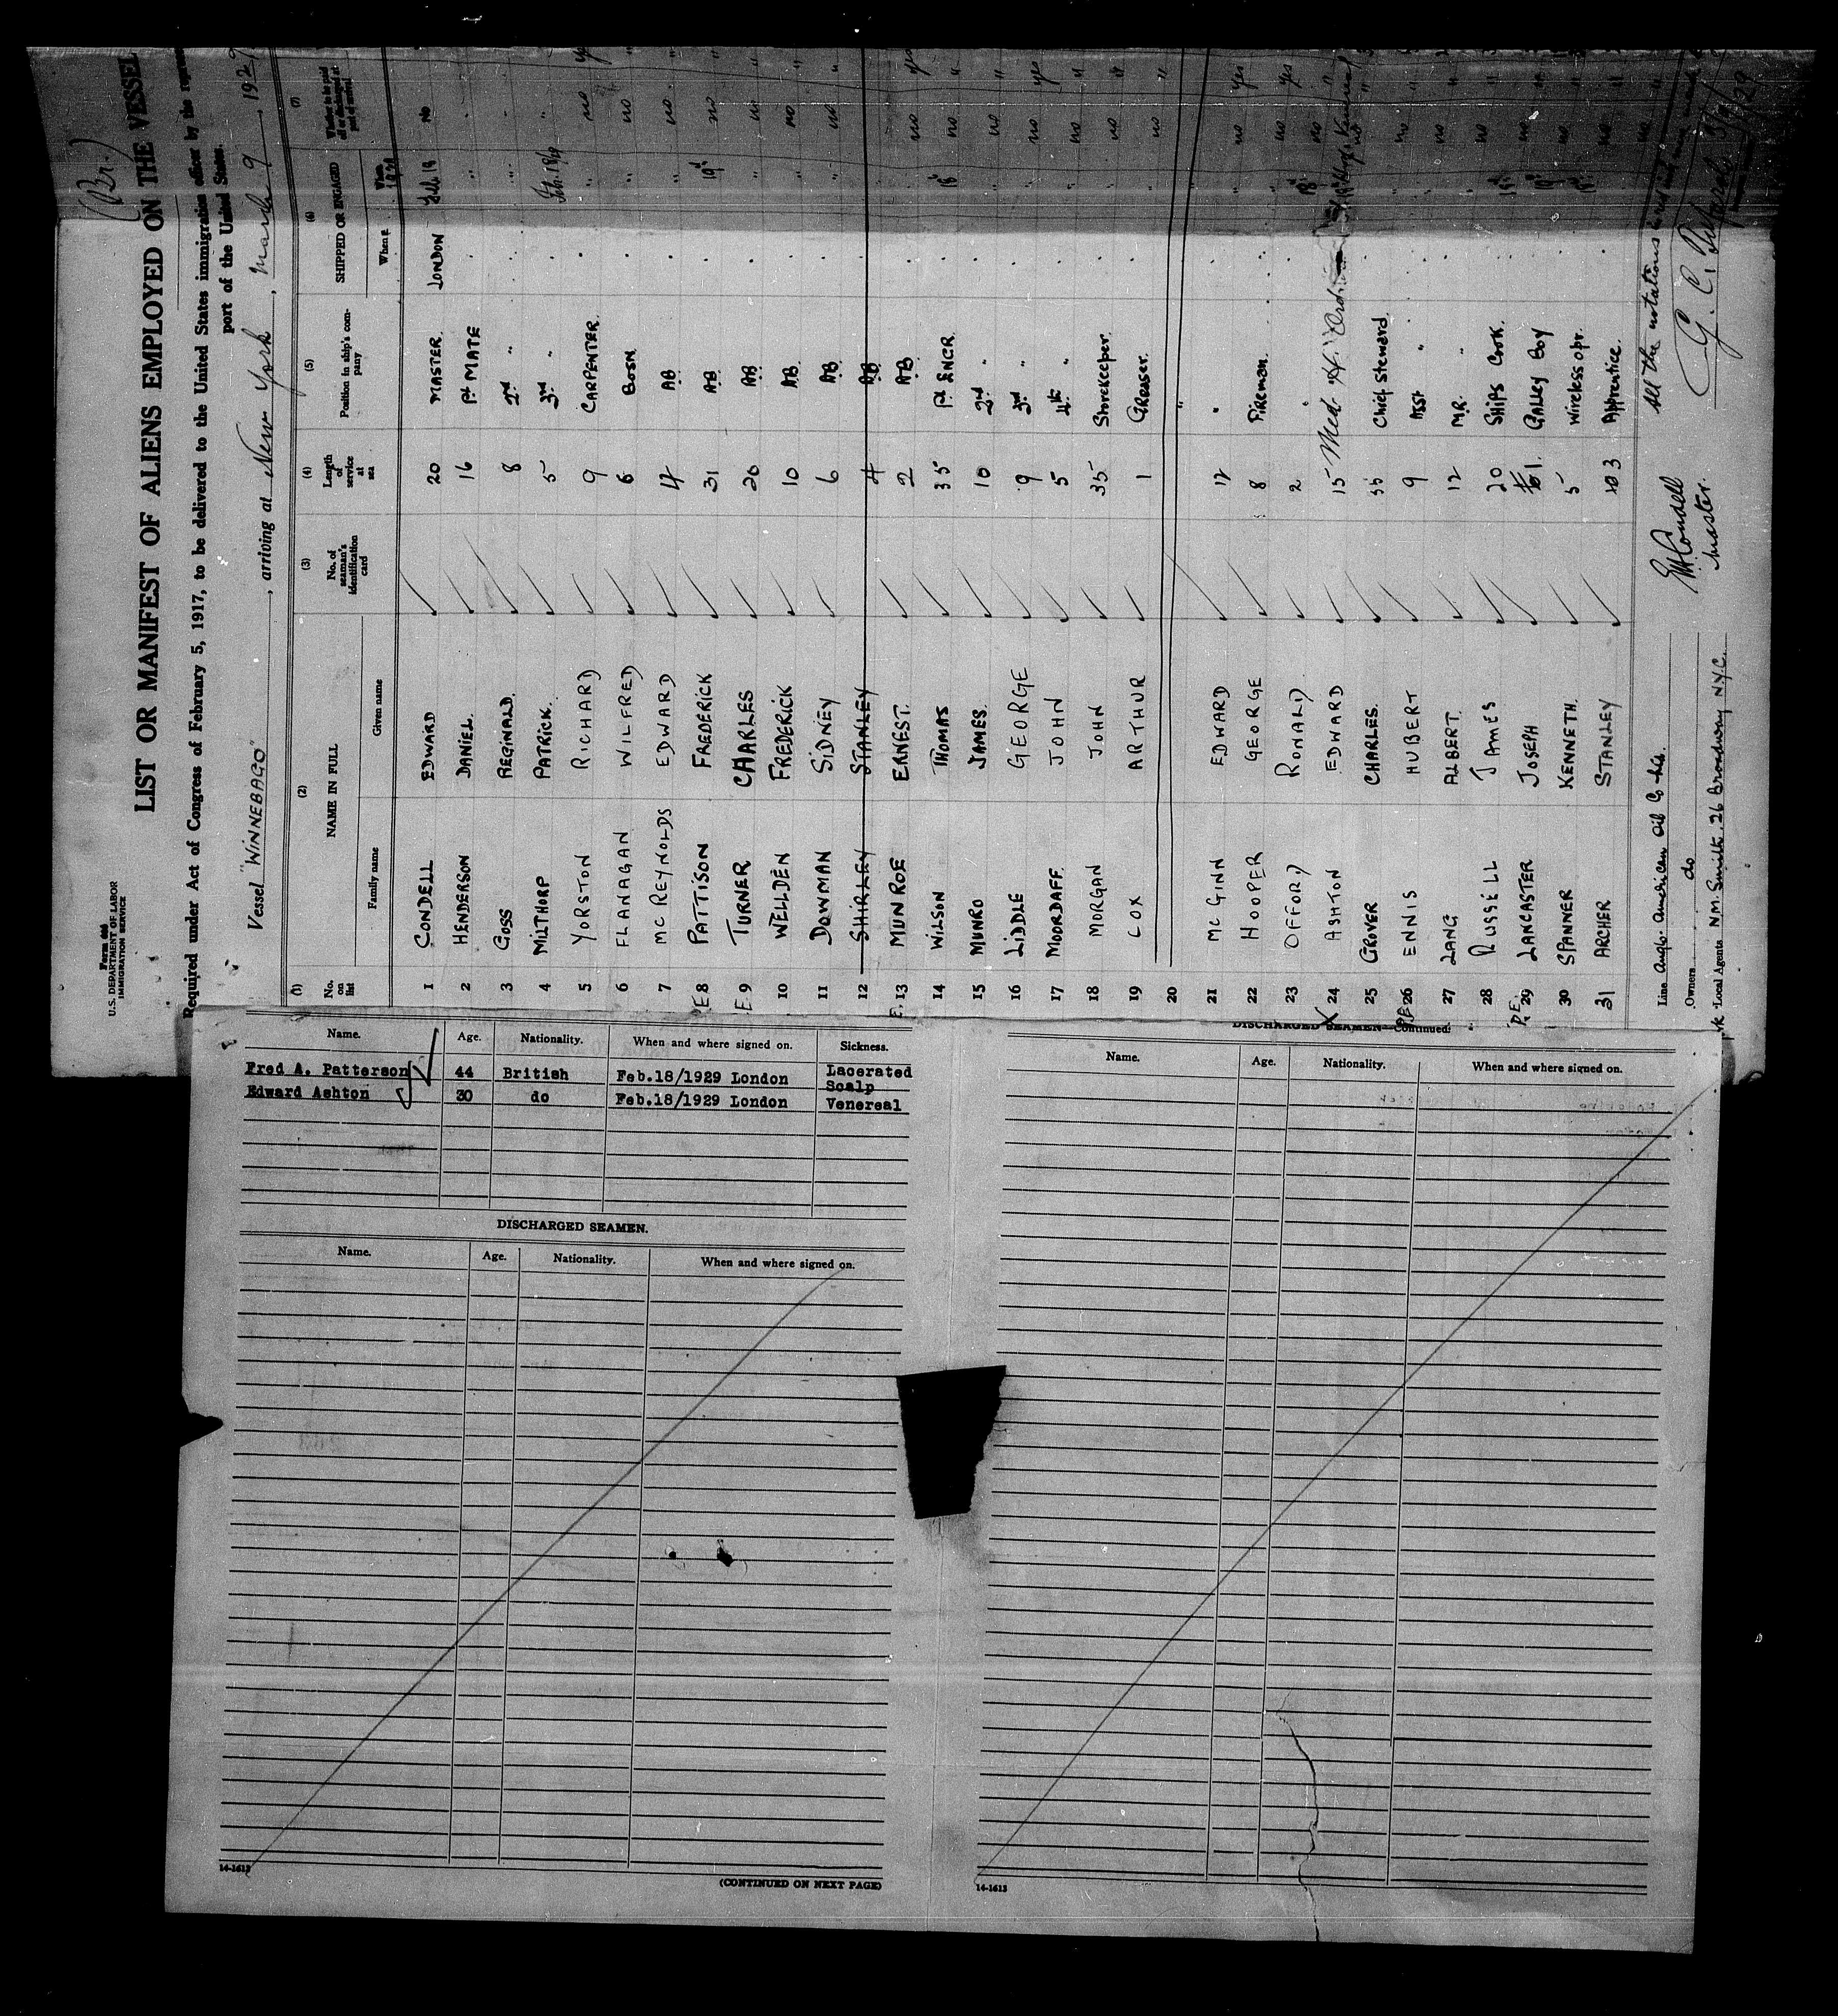 (Br.)
Form 606
U.S. DEPARTMENT OF LABOR
IMMIGRATION SERVICE
LIST OR MANIFEST OF ALIENS EMPLOYED ON THE VESSEL
Required under Act of Congress of February 5, 1917, to be delivered to the United States immigration officer by the
port of the United States.
Vessel "WINNEBAGO", arriving at New York, March 9, 1929
(1) (2) (3) (4) (5) (6) (7)
No. on list NAME IN FULL No. of seaman's identification card Length of service at sea Position in ship's company SHIPPED OR ENGAGED Whether to be paid off or discharged at port of arrival
Family name Given name When
1 CONDELL EDWARD 20 MASTER LONDON Feb 19 No
2 HENDERSON DANIEL 16 1st MATE
3 GOSS REGINALD 8 2nd "
4 MILTHORP PATRICK 5 3rd "
5 YORSTON RICHARD 9 CARPENTER no
6 FLANAGAN WILFRED 6 BOSN no
7 MC REYNOLDS EDWARD 4 AB no
8 PATTISON FREDERICK 31 AB 19th no
E 9 TURNER CHARLES 20 AB no
10 WELLDEN FREDERICK 10 AB no
11 DOWMAN SIDNEY 6 AB no
12 SHIRLEY STANLEY 4 AB
E. 13 MUNROE ERNEST 2 AB no
14 WILSON THOMAS 35 1st ENGR 18 no
15 MUNRO JAMES 10 2nd " no
16 LIDDLE GEORGE 9 3rd " no
17 MOORDAFF JOHN 5 4th " no
18 MORGAN JOHN 35 Storekeeper no
19 COX ARTHUR 1 Greaser no
20 "
21 MC GINN EDWARD 12 " no yes
22 HOOPER GEORGE 8 Fireman no
23 OFFORD RONALD 2 " no yes
X 24 ASHTON EDWARD 15 Med. H.
25 GROVER CHARLES 35 Chief Steward
26 ENNIS HUBERT 9 Asst " no
27 LANG ALBERT 12 M.R. " no
28 RUSSELL JAMES 20 Ships Cook no
P.E. 29 LANCASTER JOSEPH 1 Galley Boy no
30 SPANNER KENNETH 5 Wireless opr. no
31 ARCHER STANLEY 3 Apprentice no
Line Anglo-American Oil Co
Owners do
Local Agents N.M. Smith, 26 Broadway N.Y.C.
EM Condell
Master.
all the notations
G. C.
3/9/29
Name. Age. Nationality. When and where signed on. Sickness.
Fred A. Patterson 44 British Feb.18/1929 London Lacerated Scalp
Edward Ashton 30 do Feb.18/1929 London Venereal
DISCHARGED SEAMEN.
Name. Age. Nationality. When and where signed on.
14-1613
(CONTINUED ON NEXT PAGE)
DISCHARGED SEAMEN—Continued.
Name. Age. Nationality. When and where signed on.
14-1613